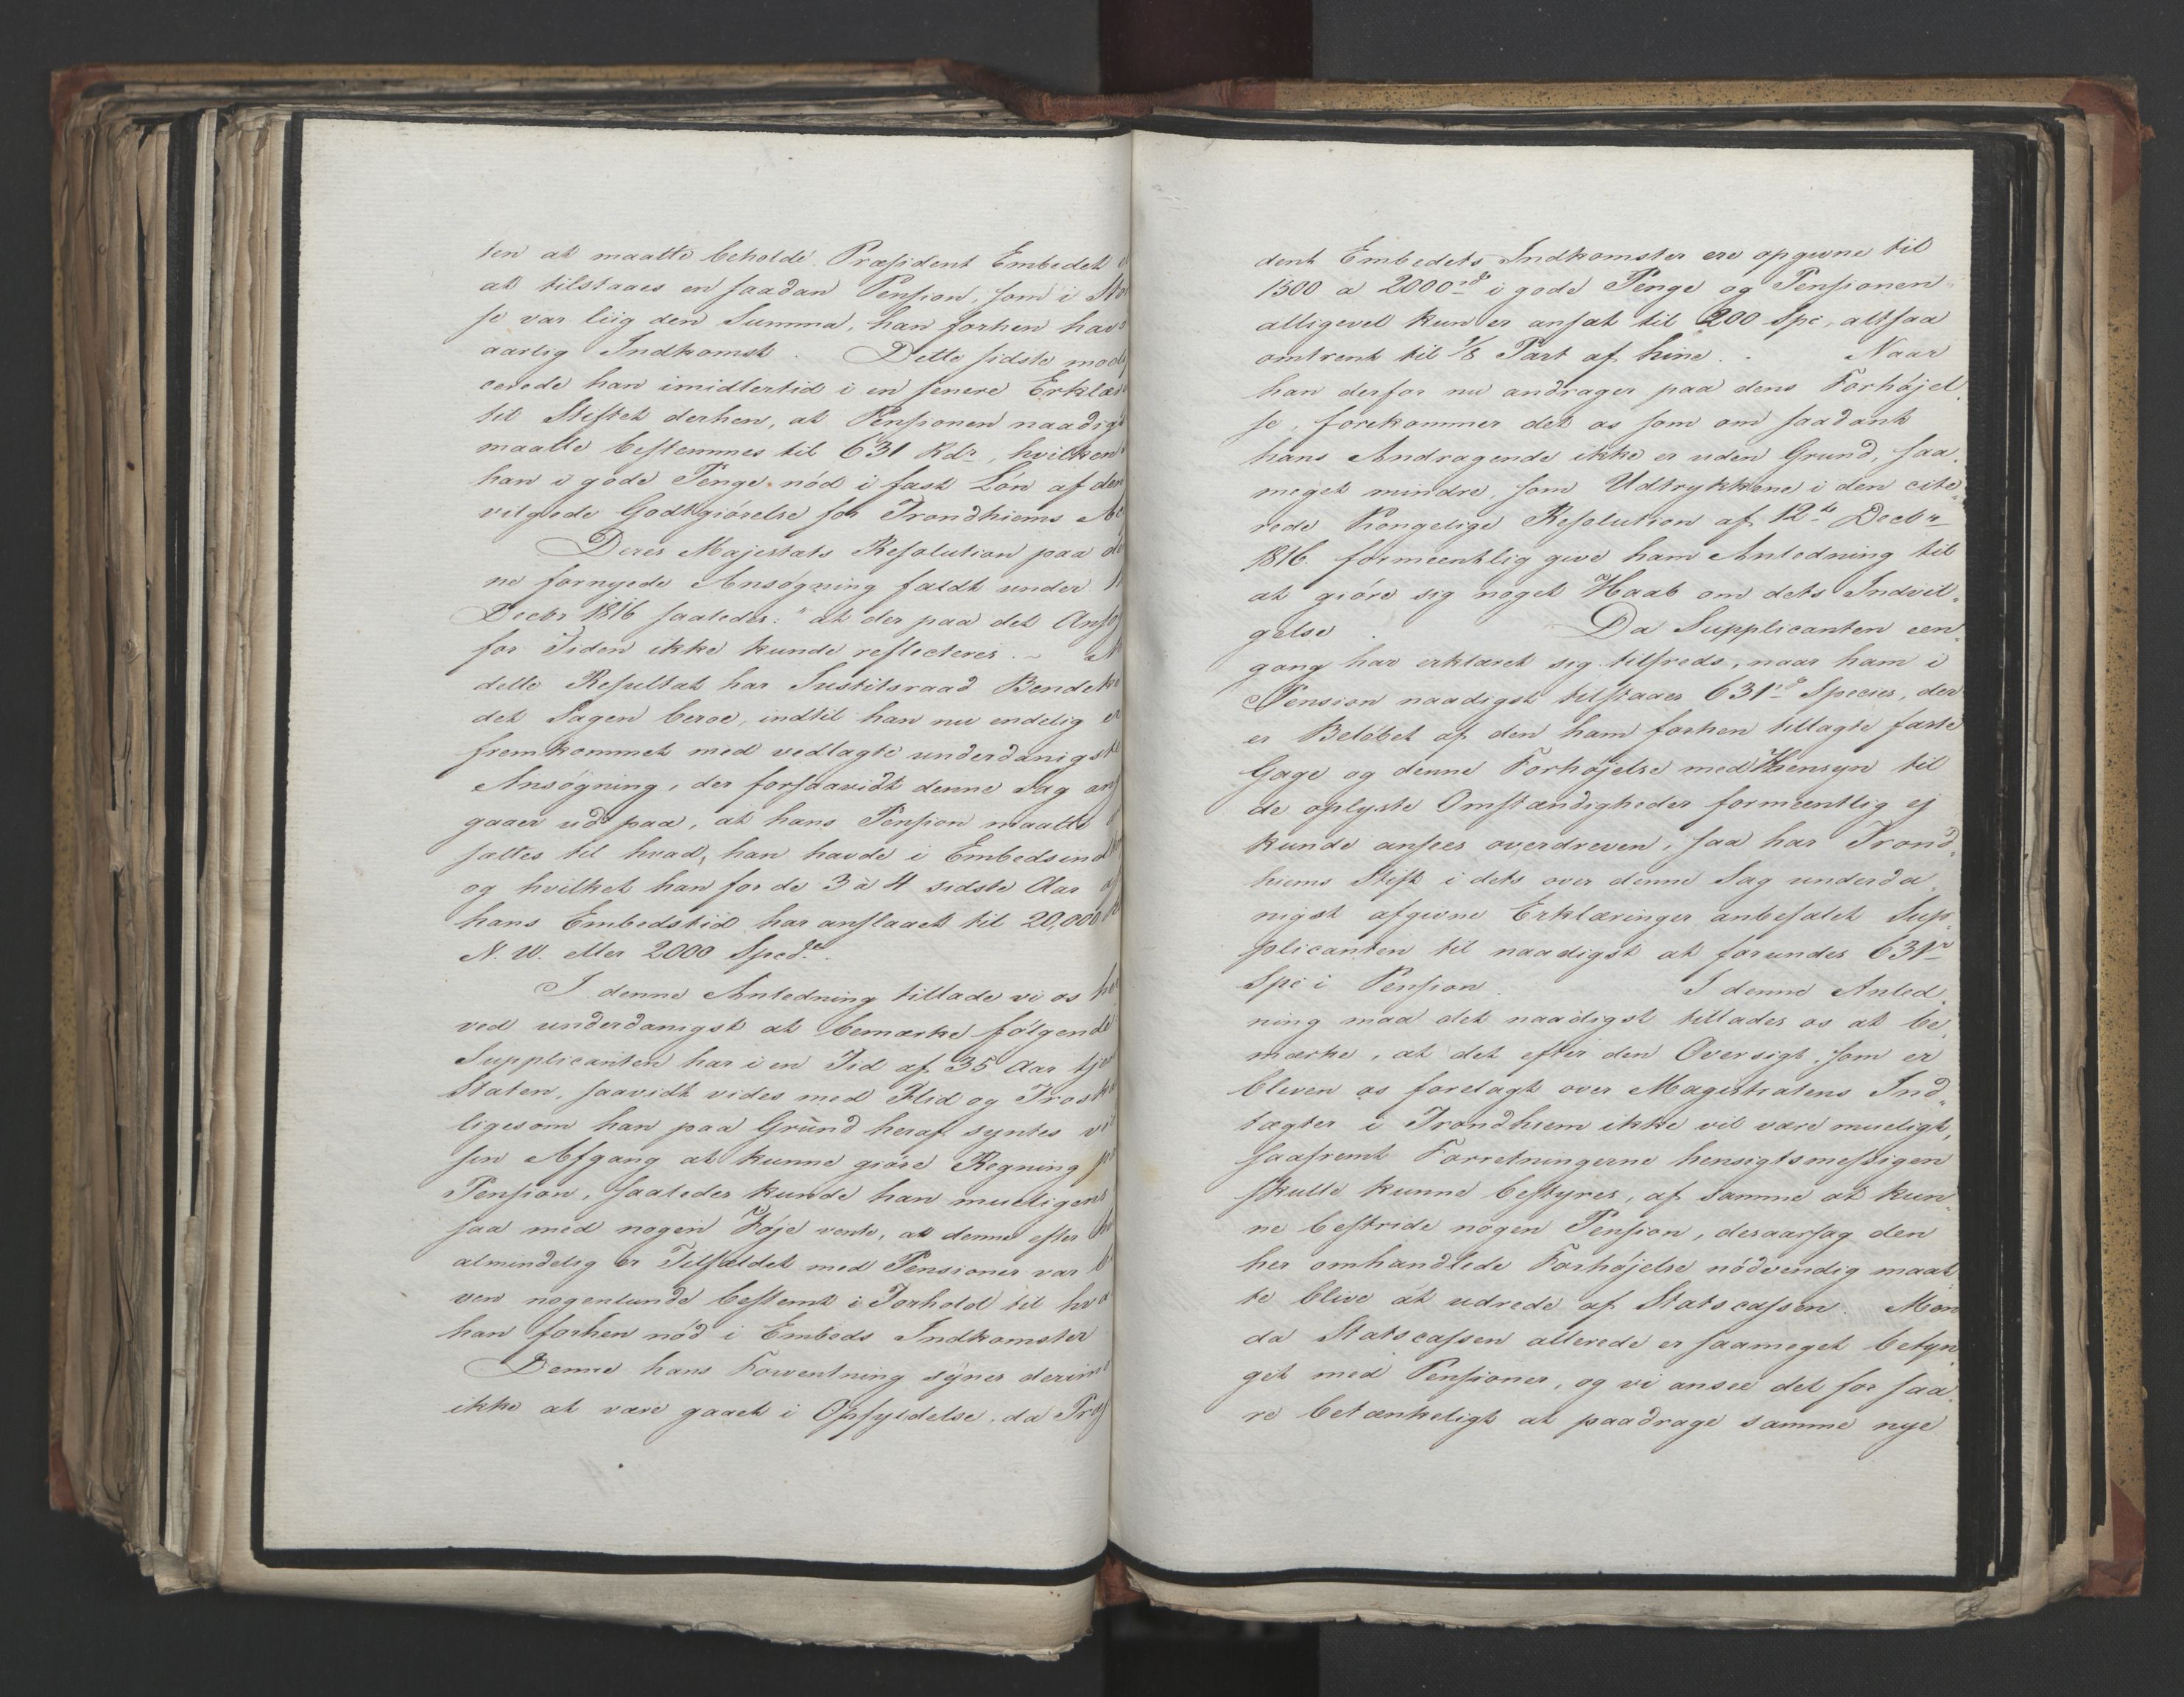 ten at maatte beholde Præsident Embedet
at tilstaaes en saadan Pension, som i
se var liig den Summa, han forhen hav
aarlig Indkomst. Dette sidste modi
cerede han imidlertid i en senere Erklæ
til Stiftet derhen, at Pensionen naadigst
maatte bestemmes til 631 Rdr, hvilken
han i gode Penge nød i fast Løn af den
vilgede Godtgiørelse for Trondhiems
Deres Majestæts Resolution paa
ne fornyede Ansøgning faldt under
Decbr 1816 saaledes: "at der paa det Ansø
for Tiden ikke kunde reflecteres. -
dette Resultat har Justitsraad Bendeke
det Sagen beroe, indtil han nu endelig er
fremkommet med vedlagte underdanigste
Ansøgning, der forsaavidt denne Sag an
gaaer ud paa, at hans Pension maatte
sættes til hvad, han havde i Embedsind
og hvilket han for de 3 à 4 sidste Aar
hans Embedstid har anslaaet til 20,000
N. W. eller 2000 Spcd.
I denne Anledning tillade vi os her
ved underdanigst at bemærke følgende
Supplicanten har i en Tid af 35 Aar tje
Staten, saavidt vides med Flid og Trosk
ligesom han paa Grund heraf syntes v
sin Afgang at kunne giøre Regning p
Pension, saaledes kunde han mueligens
saa med nogen Føje vente, at denne efter
almindelig er Tilfældet med Pensioner var b
ven nogenlunde bestemt i Forhold til hva
han forhen nød i Embeds Indkomster
Denne hans Forventning synes derim
ikke at være gaaet i Opfyldelse, da Præs
dent Embedets Indkomster ere opgivne til
1500 a 2000 rd i gode Penge og Pensionen
alligevel kun er ansat til 200 Spc, altsaa
omtrent til 1/8 Part af hine. Naar
han derfor nu andrager paa dens Forhøjel
se, forekommer det os som om saadant
hans Andragende ikke er uden Grund, saa
meget mindre, som Udtrykkene i den cite„
rede Kongelige Resolution af 12te Decbr
1816 formeentlig give ham Anledning til
at giøre sig noget Haab om dets Indvil„
gelse. Da Supplicanten een„
gang har erklæret sig tilfreds, naar ham i
Pension naadigst tilstaaes 631 rd Species, der
er Beløbet af den ham forhen tillagte faste
Gage og denne Forhøjelse med Hensyn til
de oplyste Omstændigheder formeentlig ej
kunde ansees overdreven, saa har Trond„
hiems Stift i dets over denne Sag underda„
nigst afgivne Erklæringer anbefalet Sup„
plicanten til naadigst at forundes 631 r
Spc i Pension. I denne Anled„
ning maa det naadigst tillades os at be
mærke, at det efter den Oversigt, som er
bleven os forelagt over Magistratens Ind„
tægter i Trondhiem ikke vil være mueligt,
saafremt Forretningerne hensigtsmessigen
skulle kunne bestyres, af samme at kun„
ne bestride nogen Pension, desaarsag den
her omhandlede Forhøjelse nødvendig maat
te blive at udrede af Statscassen. Men
da Statscassen allerede er saameget betyn
get med Pensioner, og vi ansee det for saa
re betænkeligt at paadrage samme nye